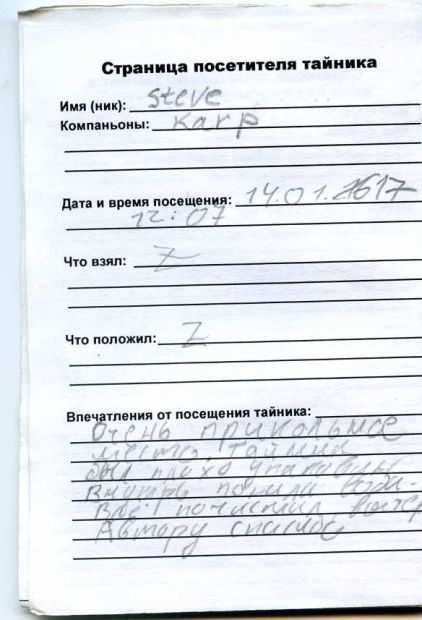 Страница посетителя тайника
Имя (ник): Steve
Компаньоны: Karp
Дата и время посещения: 14.01.2017
12:07
Что взял: Z
Что положил: Z
Впечатления от посещения тайника:
Очень прикольное
место. Тайник
был плохо упакован
Внутрь попала вода.
Всё почистил, вытер
Автору спасибо